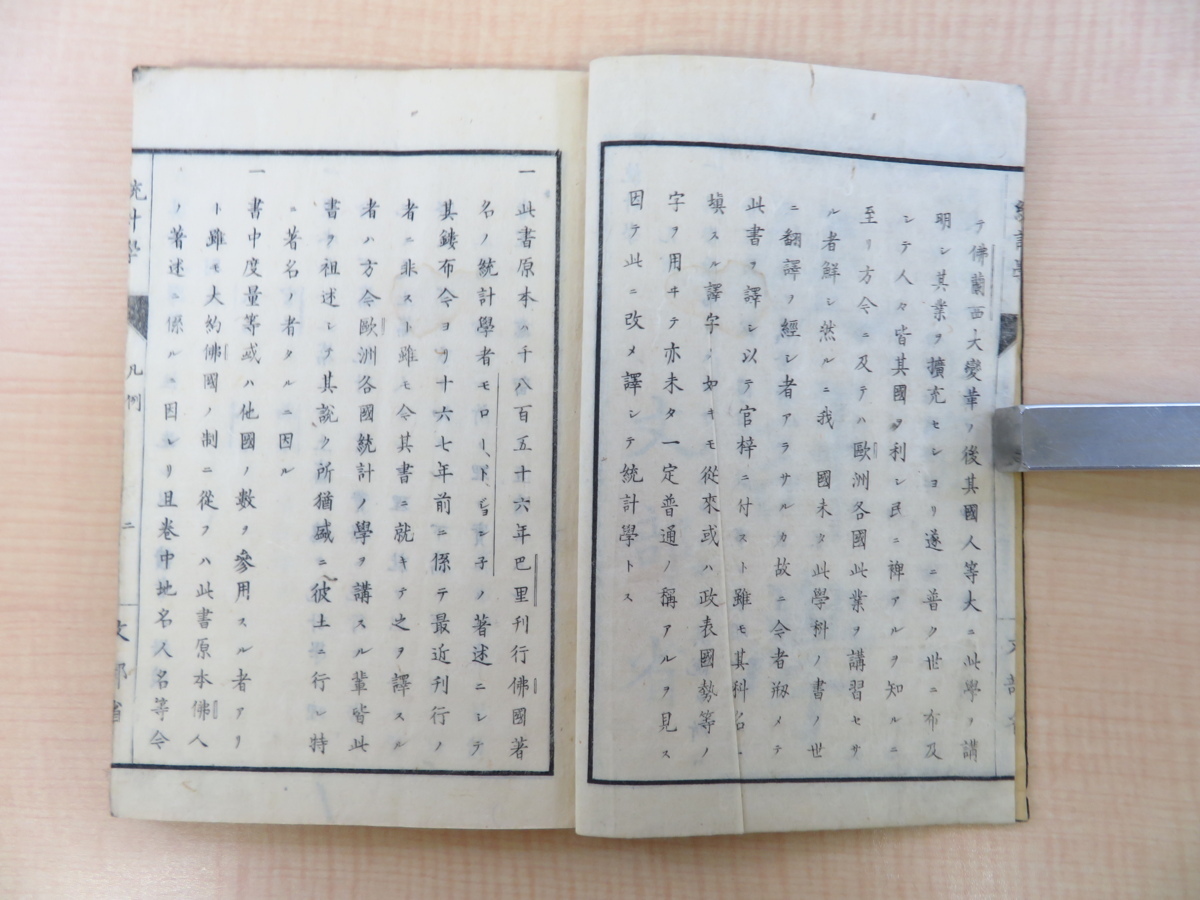 テ佛蘭西大變革ノ後其國人等大ニ此學ヲ講
明シ其業ヲ擴充セシヨリ遂ニ普ク世ニ布及
シテ人々皆其國ヲ利シ民ニ裨アルヲ知ルニ
至リ方今ニ及テハ歐洲各國此業ヲ講習セサ
ル者鮮シ然ルニ我 國未タ此學科ノ書ノ世
ニ翻譯ヲ經シ者アラサルカ故ニ今者刱メテ
此書ヲ譯シ以テ官梓ニ付スト雖モ其科名ニ
塡スル譯字ノ如キモ從來或ハ政表國勢等ノ
字ヲ用ヰテ亦未タ一定普通ノ稱アルヲ見ス
因テ此ニ改メ譯シテ統計學トス
一此書原本ハ千八百五十六年巴里刊行佛國著
名ノ統計學者モロー、ド、ジョン子ノ著述ニシテ
其鏤布今ヨリ十六七年前ニ係テ最近刊行ノ
者ニ非スト雖モ今其書ニ就キテ之ヲ譯スル
者ハ方今歐洲各國統計ノ學ヲ講スル輩皆此
書ヲ祖述シテ其說ク所猶盛ニ彼土ニ行レ特
ニ著名ノ者タルニ因ル
一書中度量等或ハ他國ノ數ヲ參用スル者アリ
ト雖モ大約佛國ノ制ニ從フハ此書原本佛人
ノ著述ニ係ルニ因レリ且卷中地名人名等今
統計學 凡例 二 文部省